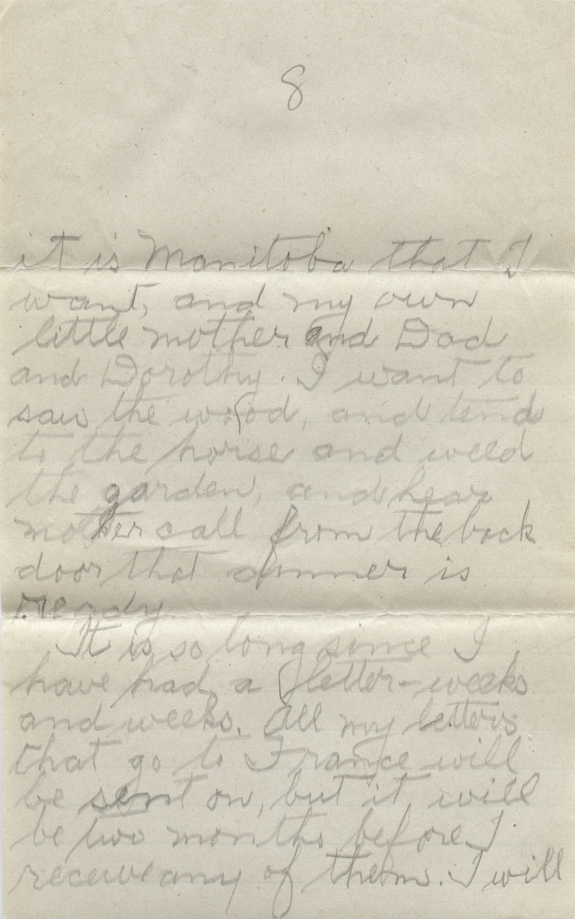 8
it is Manitoba that I
want, and my own
little mother and Dad
and Dorothy. I want to
saw the wood, and tend
to the horse and weed
the garden, and hear
mother call from the back
door that dinner is
ready.
It is so long since I
have had a letter - weeks
and weeks. All my letters
that go to France will
be sent on, but it will
be two months before I
receive any of them. I will